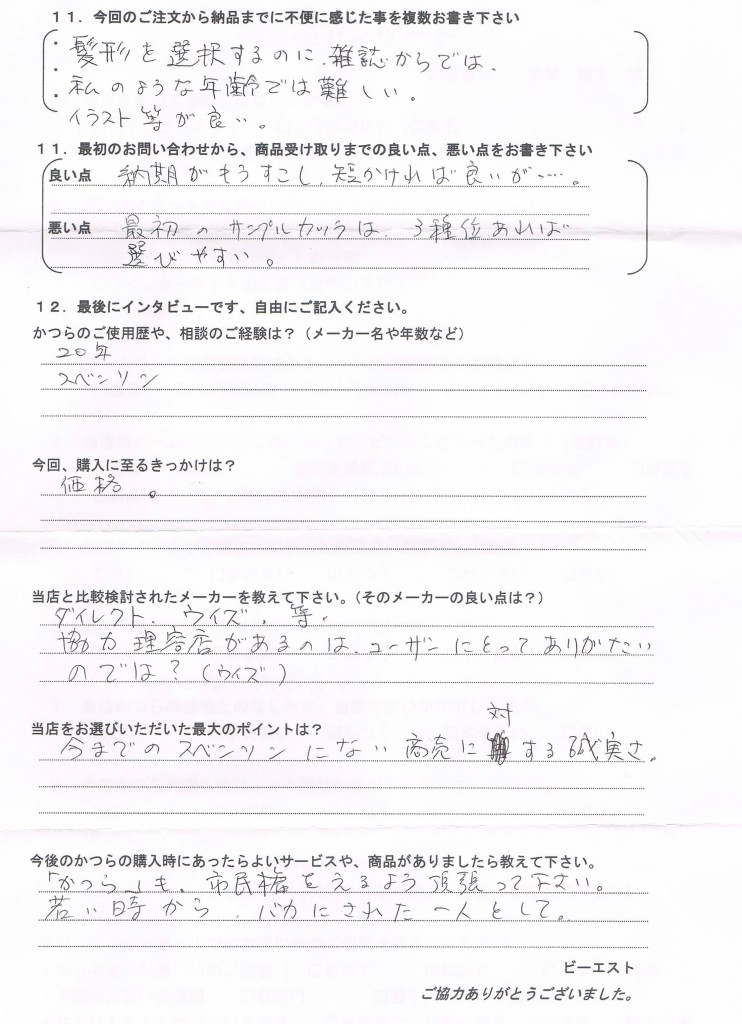 １１．今回のご注文から納品までに不便に感じた事を複数お書き下さい
・髪形を選択するのに、雑誌からでは、
・私のような年齢では難しい。
・イラスト等が良い。
１１．最初のお問い合わせから、商品受け取りまでの良い点、悪い点をお書き下さい
良い点　納期がもうすこし、短かければ良いが……。
悪い点　最初のサンプルカツラは、3種位あれば
選びやすい。
１２．最後にインタビューです、自由にご記入ください。
かつらのご使用歴や、相談のご経験は？（メーカー名や年数など）
20年
スベンソン
今回、購入に至るきっかけは？
価格。
当店と比較検討されたメーカーを教えて下さい。（そのメーカーの良い点は？）
ダイレクト、ウイズ、等、
協力理容店があるのは、ユーザーにとってありがたい
のでは？（ウイズ）
当店をお選びいただいた最大のポイントは？
今までのスベンソンにない商売に対する誠実さ。
今後のかつらの購入時にあったらよいサービスや、商品がありましたら教えて下さい。
「かつら」も、市民権をえるよう頑張って下さい。
若い時から、バカにされた一人として。
ビーエスト
ご協力ありがとうございました。